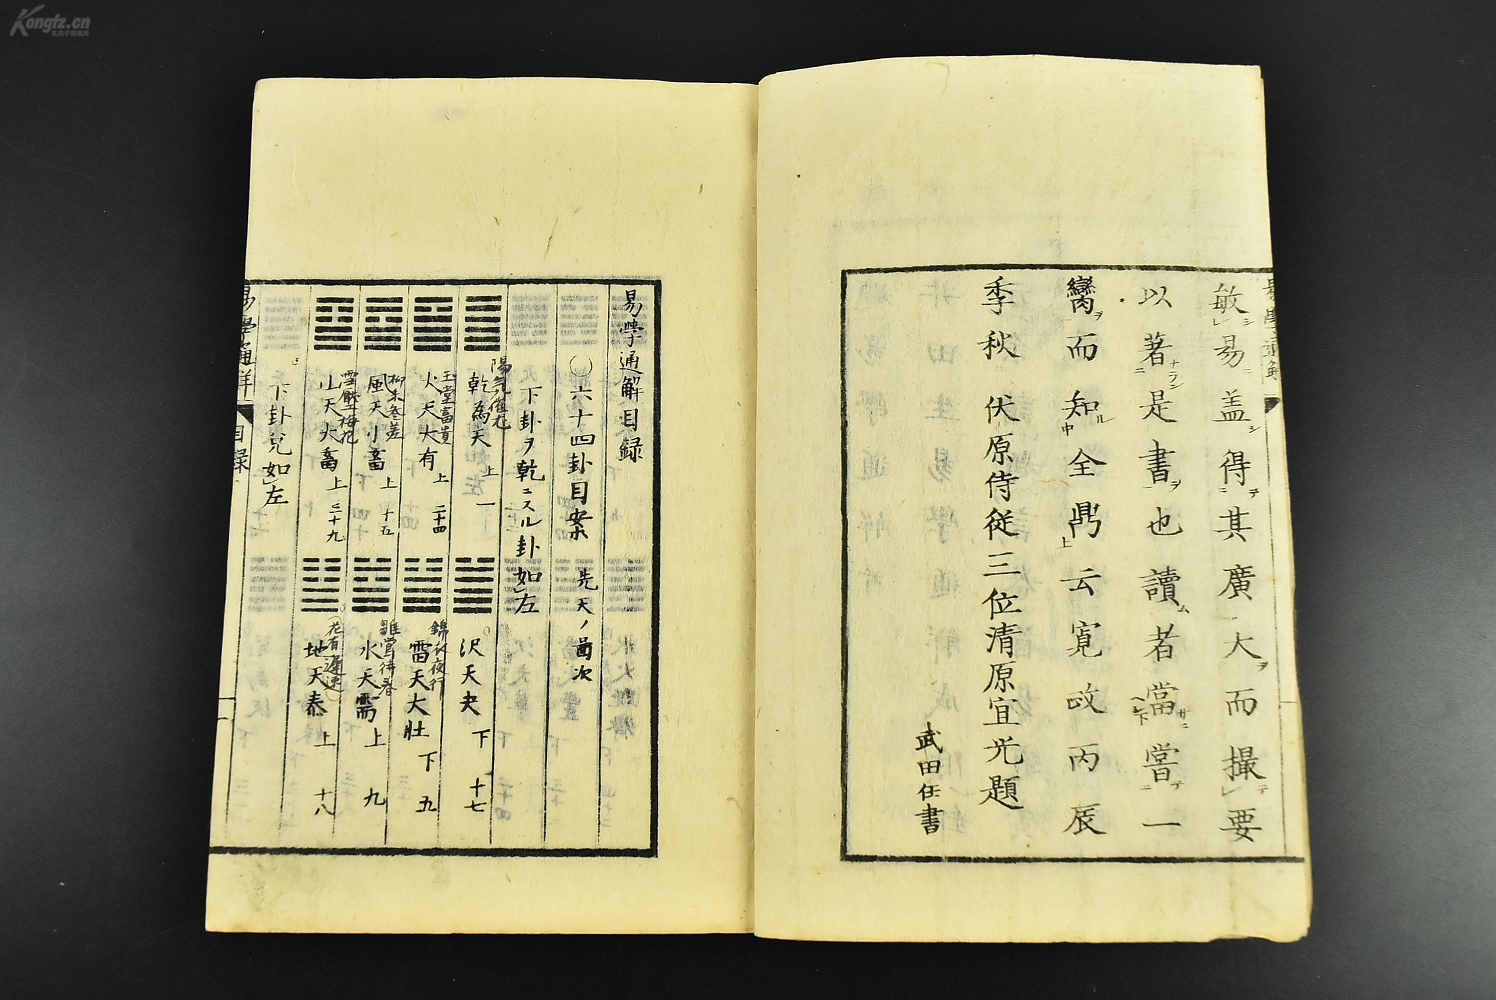 Kongfz.cn
易學通解
敏シ易ニ蓋シ得ニ其ヲ廣大ヲ而撮テ要
以著ナランニ是書ヲ也讀ム者當サニ嘗テ一
臠ヲ而知ル中全鼎上云寛政丙辰
季秋 伏原侍従三位清原宜光題
武田任書
易學通解目録
〇六十四卦目案 先天ノ啚次
下卦ヲ乾ニスル卦如左
陽氣
乾為天 上 一
沢天夬 下 十七
玉堂富貴
火天大有 上 二十四
錦衣夜行
雷天大壮 下 五
柳木参差
風天小畜 上 十五
雛鶯待春
水天需 上 九
雪壓梅花
山天大畜 上 三十九
地天泰 上 十八
下卦兌如左
易學通解 目録